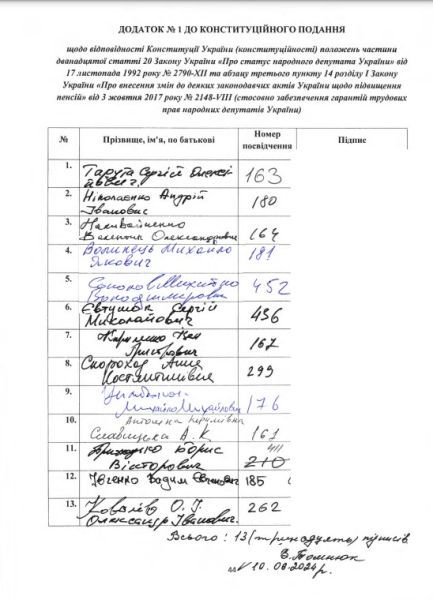 ДОДАТОК № 1 ДО КОНСТИТУЦІЙНОГО ПОДАННЯ
щодо відповідності Конституції України (конституційності) положень частини
дванадцятої статті 20 Закону України «Про статус народного депутата України» від
17 листопада 1992 року № 2790-XII та абзацу третього пункту 14 розділу I Закону
України «Про внесення змін до деяких законодавчих актів України щодо підвищення
пенсій» від 3 жовтня 2017 року № 2148-VIII (стосовно забезпечення гарантій трудових
прав народних депутатів України)
№ Прізвище, ім'я, по батькові Номер посвідчення Підпис
1. Тарута Сергій Олексі-
йович. 163
2. Ніколаєнко Андрій
Іванович 180
3. Наливайченко
Валентин Олександрович 164
4. Волинець Михайло
Якович 181
5. Микитович
Володимирович 452
6. Євтушок Сергій
Миколайович 436
7. Кириленко Іван
Григорович 167
8. Скороход Анна
Костянтинівна 299
9. Цимбалюк
Михайло Михайлович 176
10. Антоніна Керимівна
Славицька А. К 161
11. Приходько Борис
Вікторович 411 210
12. Івченко Вадим Євгенович 185
13. Ковальов О. І.
Олександр Іванович. 262
Всього: 13 (тринадцять) підписів
10. 06. 2024 р.